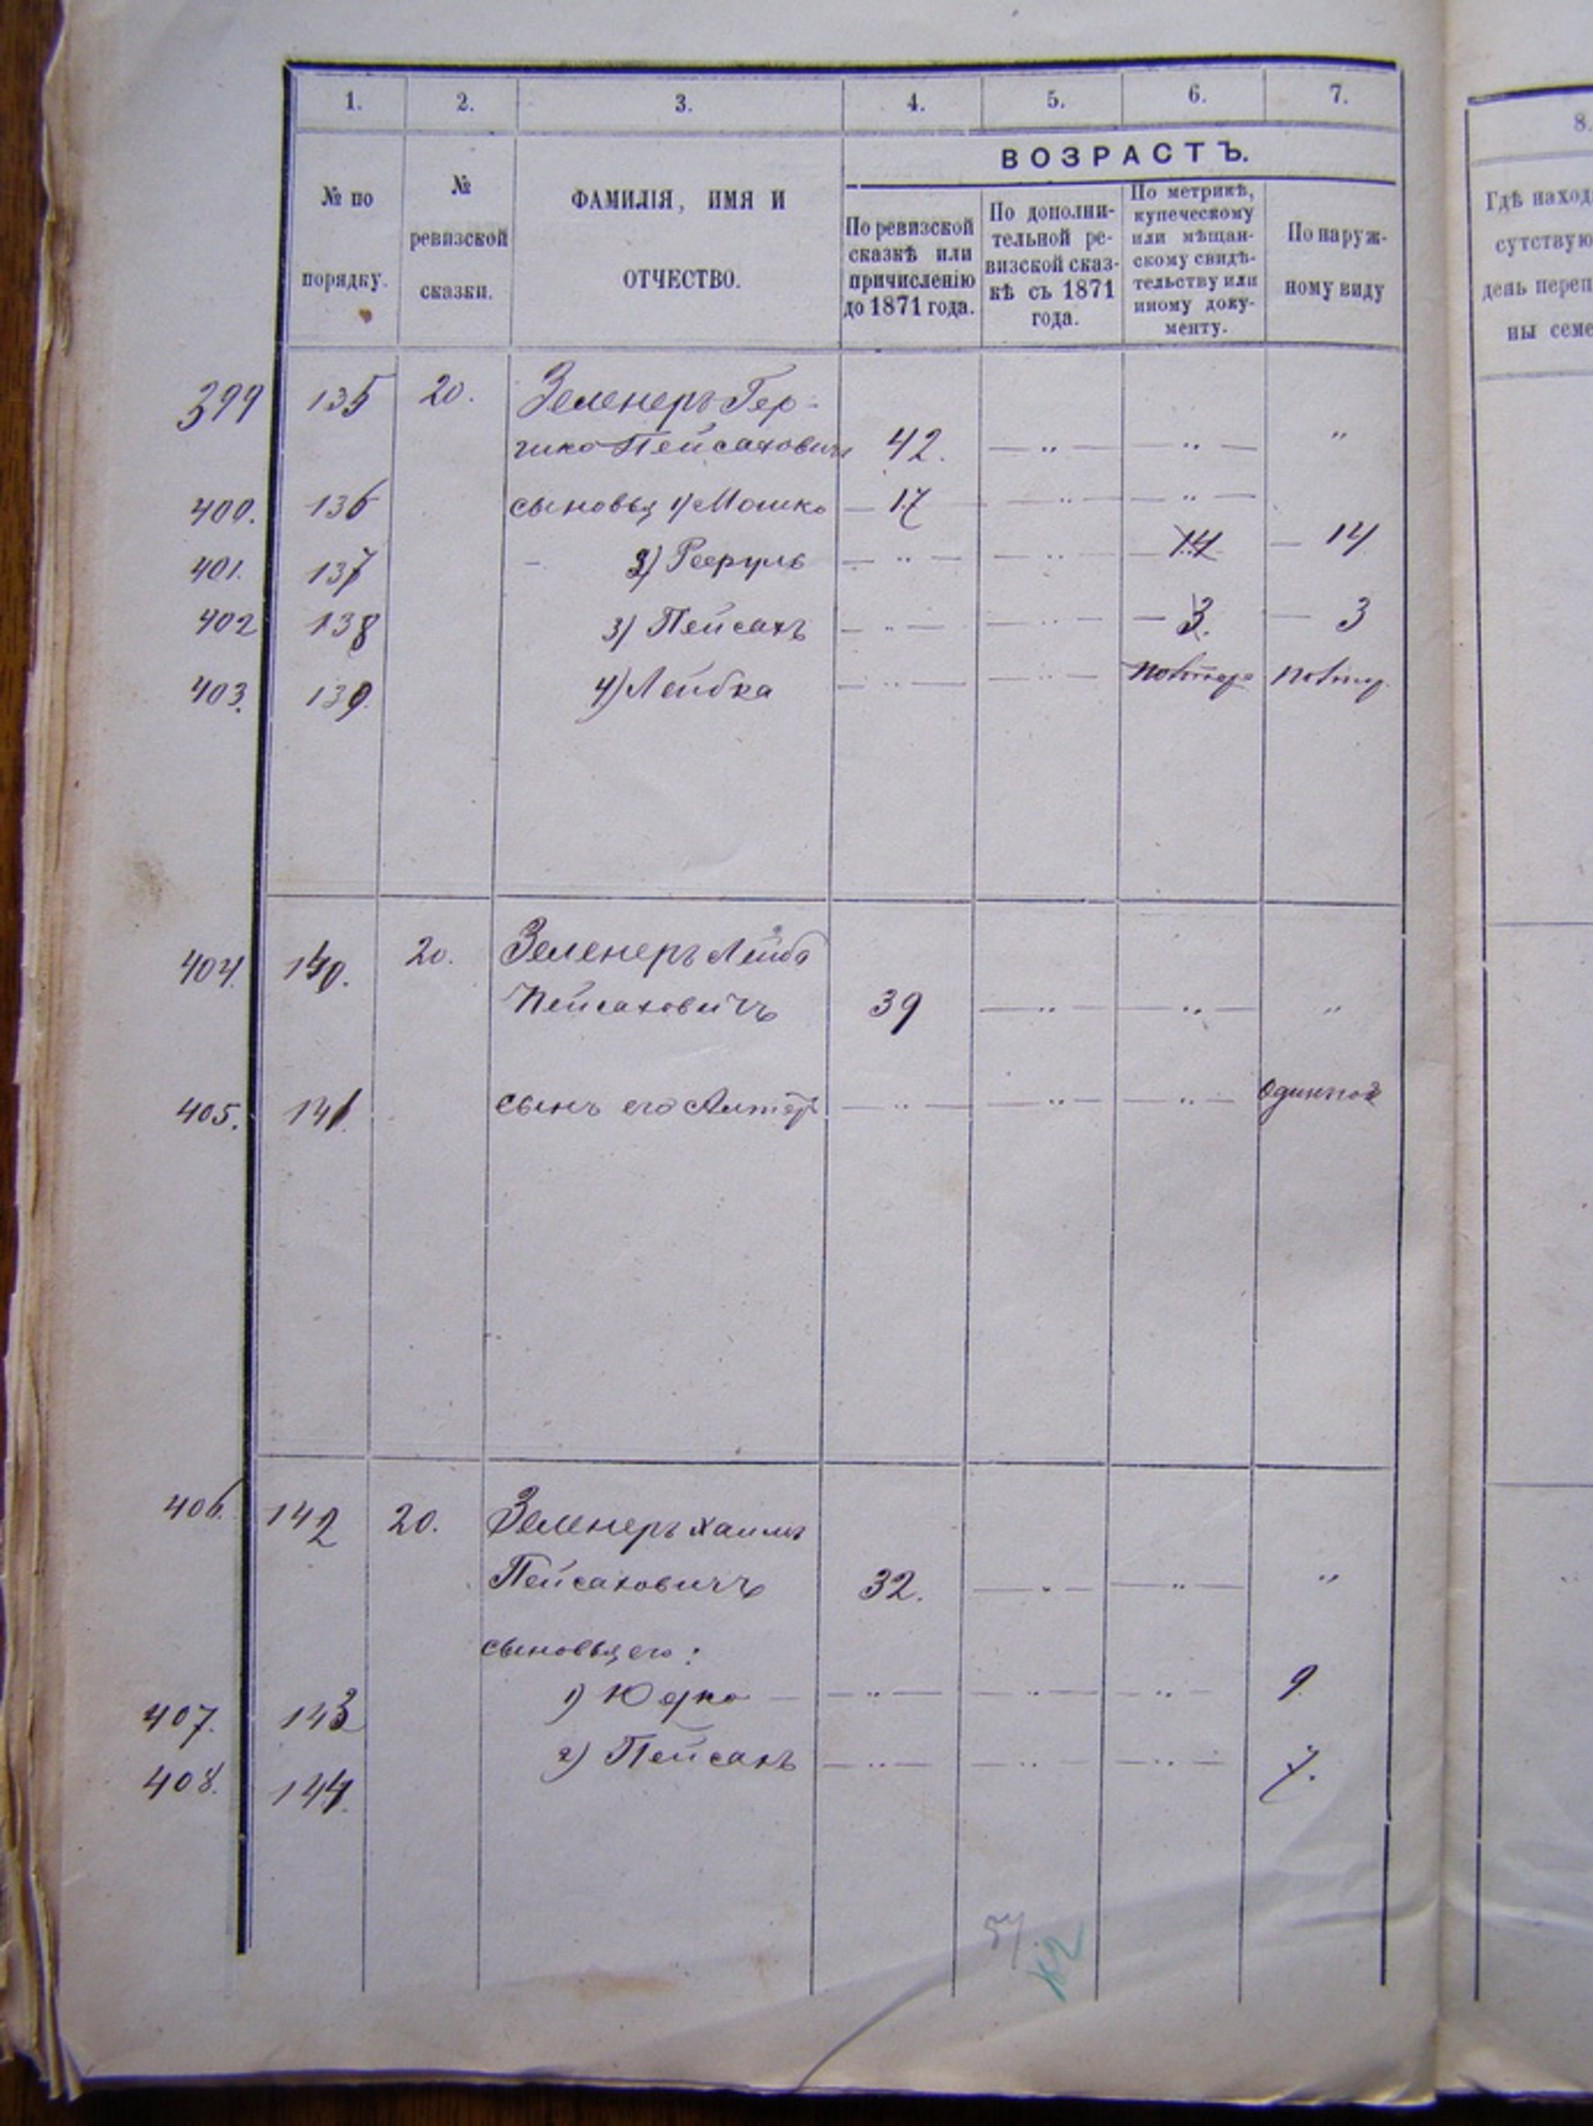 1. 2. 3. 4. 5. 6. 7.
8.
ВОЗРАСТЪ.
№ по порядку.
№ ревизской сказки.
ФАМИЛІЯ, ИМЯ И
ОТЧЕСТВО.
По ревизской
сказкѣ или
причисленію
до 1871 года.
По дополни-
тельной ре-
визской сказ-
кѣ съ 1871
года.
По метрикѣ,
купеческому
или мѣщан-
скому свидѣ-
тельству или
иному доку-
менту.
По наруж-
ному виду
Гдѣ наход
сутствую
день переп
ны семе
399 135 20. Зеленеръ Гер-
шко Пейсаховичъ 42. — „ — — „ — „
400. 136 сыновья 1) Мошко — 17 — „ — — „ —
401. 137 — 2) — „ — — „ — 14 — 14
402 138 3) Пейсахъ — „ — — „ — — 3. — 3
403. 139. 4) Лейбка — „ — — „ —
404. 140. 20. Зеленеръ Лейба
Пейсаховичъ 39 — „ — — „ — „
405. 141. сынъ его Алтеръ — „ — — „ — — „ —
406. 142 20. Зеленеръ Хаимъ
Пейсаховичъ 32. — „ — — „ — „
сыновья его:
407. 143 1) — — „ — — „ — — „ — 9
408. 144. 2) Пейсахъ — „ — — „ — — „ — 7.